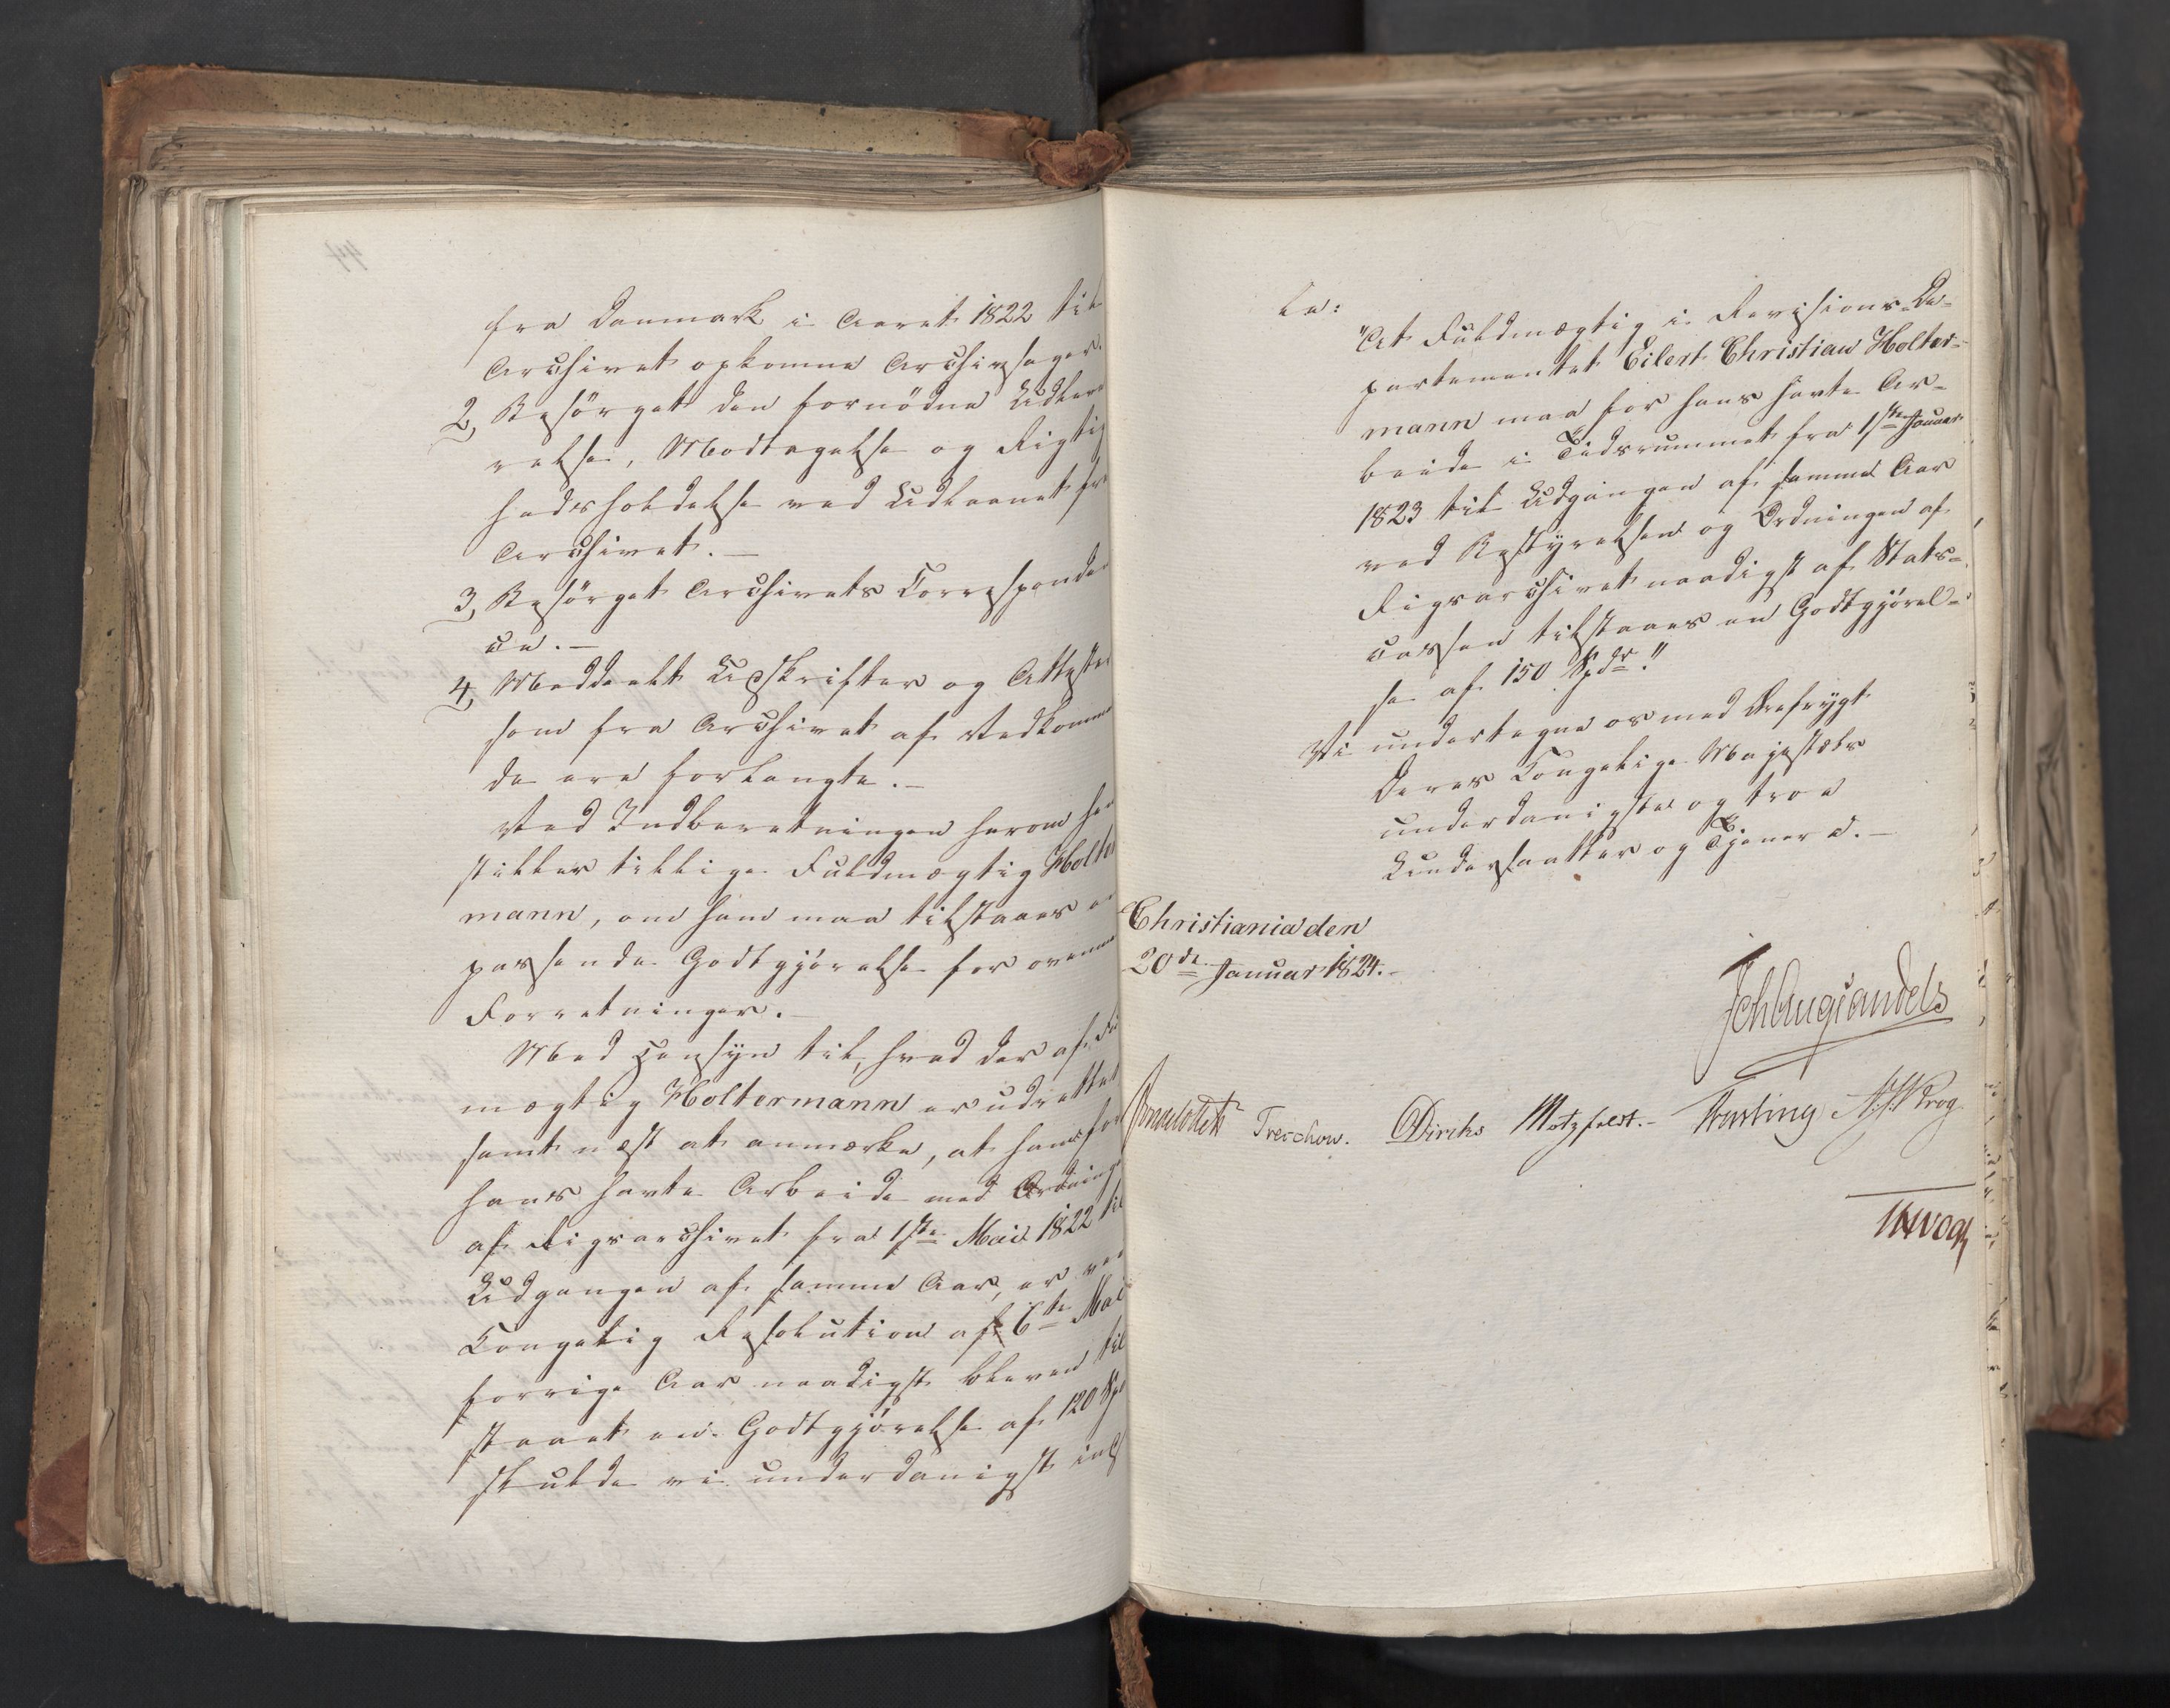 fra Danmark i Aaret 1822 til
Archivet opkomne Archivsager.
2, Besørget den fornødne Udleve
relse, Modtagelse og Rigtig
hedsholdelse ved Udlaanet fra
Archivet. –
3, Besørget Archivets Corresponden
ce. –
4, Meddeelt Udskrifter og Attester
som fra Archivet af Vedkommen
de ere forlangte. –
Ved Indberetningen herom hen
stiller tillige Fuldmægtig Holter
mann, om ham maa tilstaaes en
passende Godtgjørelse for ovenm
Forretninger. –
Med Hensyn til, hvad der af Fuld
mægtig Holtermann er udrettet
samt næst at anmærke, at ham for
hans havte Arbeide med Ordningen
af Rigsarchivet fra 1ste Mai 1822 til
Udgangen af samme Aar, er ved
Kongelig Resolution af 6te Mai
forrige Aar naadigst bleven til
staaet en Godtgjørelse af 120 Spd
skulde vi underdanigst ind
le:
"At Fuldmægtig i Revisions-De-
partementet Eilert Christian Holter-
mann maa for hans havte Ar-
beide i Tidsrummet fra 1ste Januar
1823 til Udgangen af samme Aar
ved Bestyrelsen og Ordningen af
Rigsarchivet naadigst af Stats-
cassen tilstaaes en Godtgjørel-
se af 150 Spdr."
Vi undertegne os med Ærefrygt
Deres Kongelige Majestæts
underdanigste og troe
Undersaatter og Tjenere. –
Christiania den
20de Januar 1824. –
Joh Aug Sandels
Sommerfeldt Treschow. Diriks Motzfeldt. – Fasting A. H. Krog
JHVogt